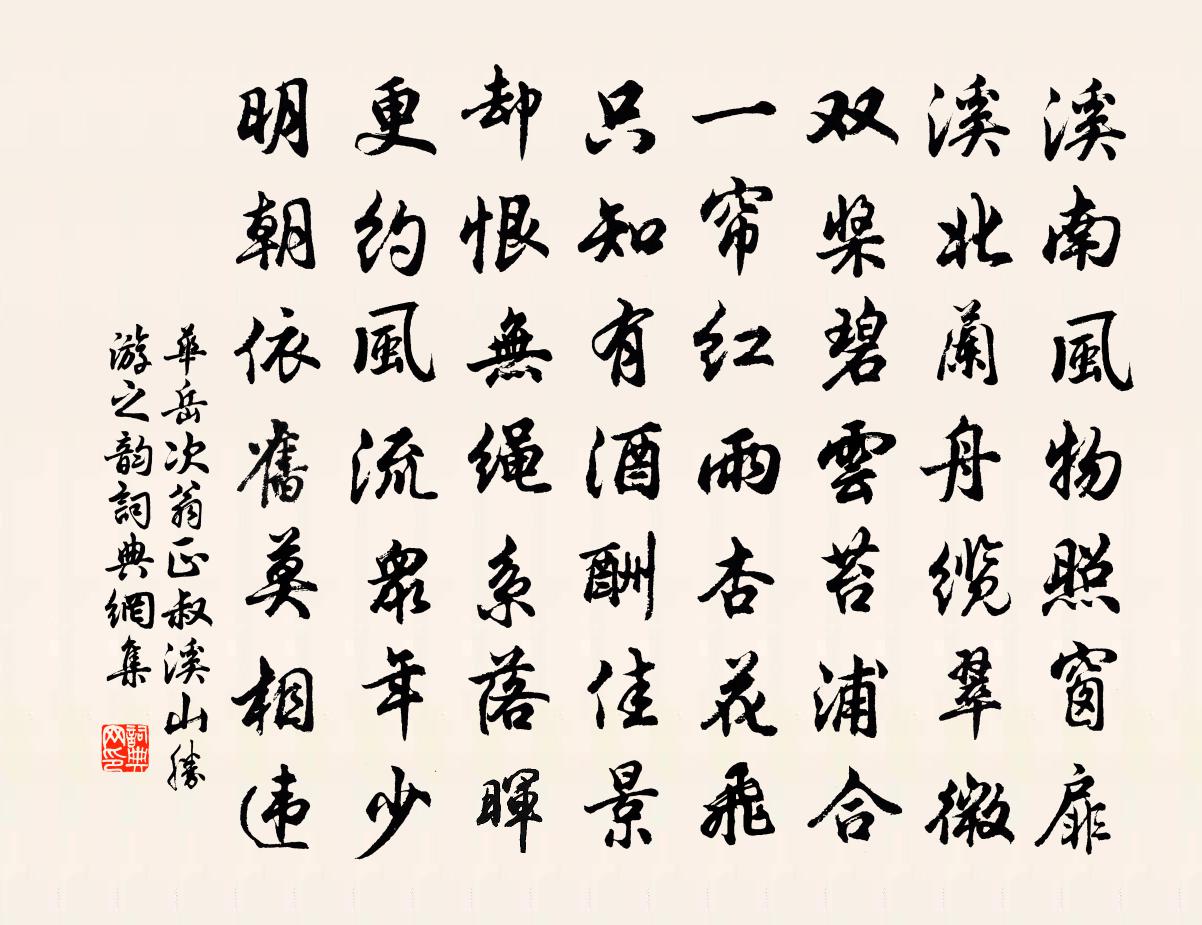 溪南風物照窗扉
溪北蘭舟缆翠微
双桨碧雲苔浦合
一帘红雨杏花飛
只知有酒酬佳景
却恨無绳系落暉
更约風流眾年少
明朝依舊莫相违
華岳次翁正叔溪山勝
游之韵詞典網集
詞典网印